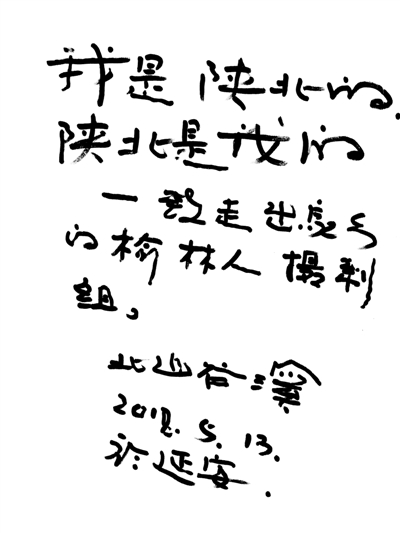 我是陕北的.
陕北是我的
一致走出
的榆林人摄制
组。
北
2018.5.13.
于延安.